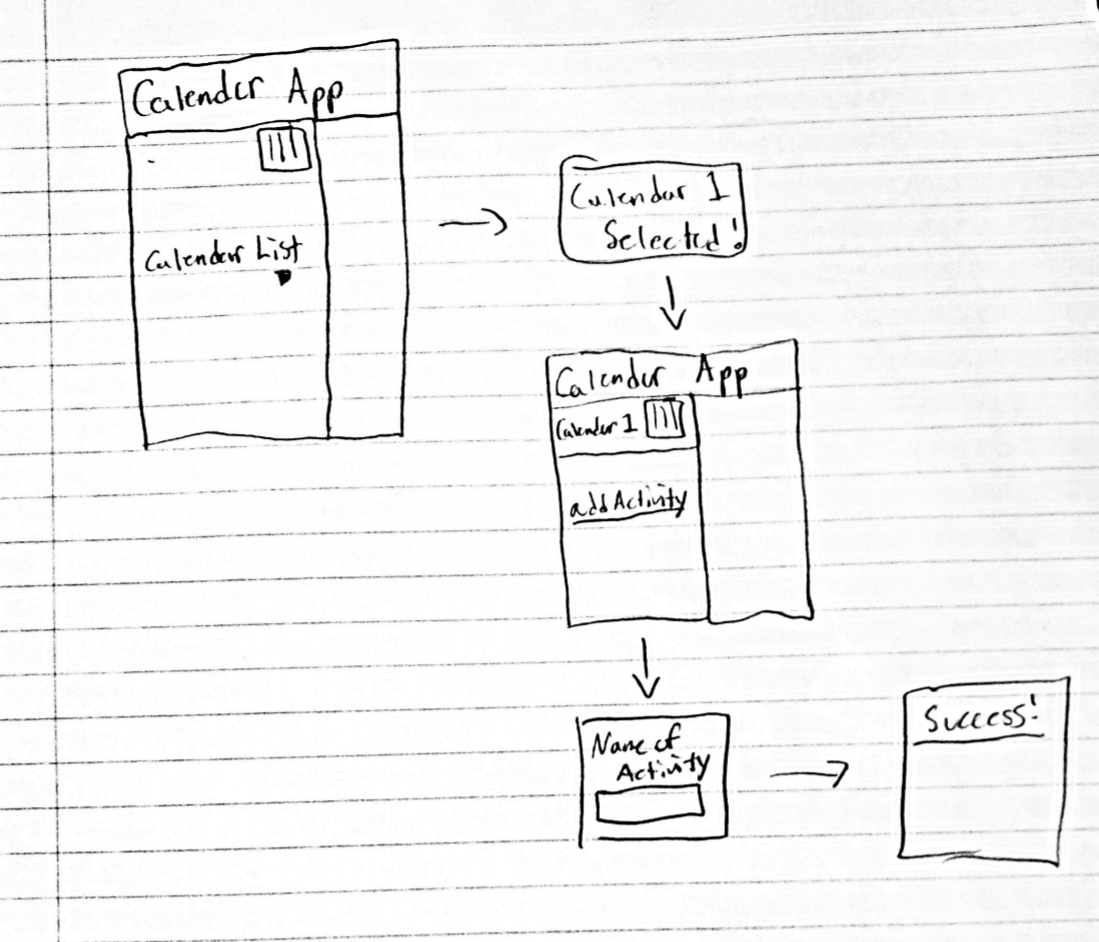 Calender App
Calender List
Calendar 1
Selected!
Calender App
Calender 1
add Activity
Name of
Activity
Success!